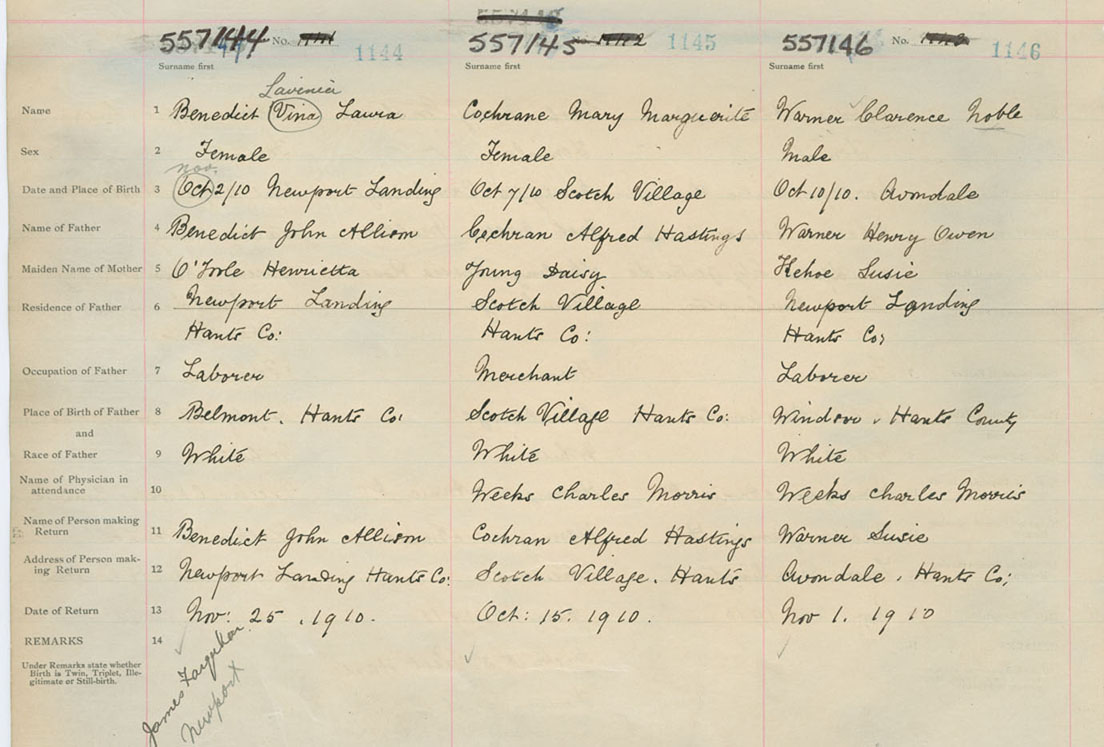 557144 No. 1144
557145 No. 1145
557146 No. 1146
Surname first Surname first Surname first
Lavinia
Name 1 Benedict Vina Laura Cochrane Mary Marguerite Warner Clarence Noble
Sex 2 Female Female Male
Nov.
Date and Place of Birth 3 Oct 2/10 Newport Landing Oct 7/10 Scotch Village Oct 10/10. Avondale
Name of Father 4 Benedict John Allison Cochran Alfred Hastings Warner Henry Owen
Maiden Name of Mother 5 O'Toole Henrietta Young Daisy Kehoe Susie
Residence of Father 6 Newport Landing Scotch Village Newport Landing
Hants Co: Hants Co: Hants Co:
Occupation of Father 7 Laborer Merchant Laborer
Place of Birth of Father 8 Belmont. Hants Co: Scotch Village Hants Co: Windsor. Hants County
and
Race of Father 9 White White White
Name of Physician in attendance 10 Weeks Charles Morris Weeks Charles Morris
Name of Person making Return 11 Benedict John Allison Cochran Alfred Hastings Warner Susie
Address of Person mak-ing Return 12 Newport Landing Hants Co: Scotch Village. Hants Avondale. Hants Co:
Date of Return 13 Nov: 25. 1910. Oct: 15. 1910. Nov 1. 1910
REMARKS 14
Under Remarks state whether
Birth is Twin, Triplet, Ille-
gitimate or Still-birth.
James Farquhar
Newport